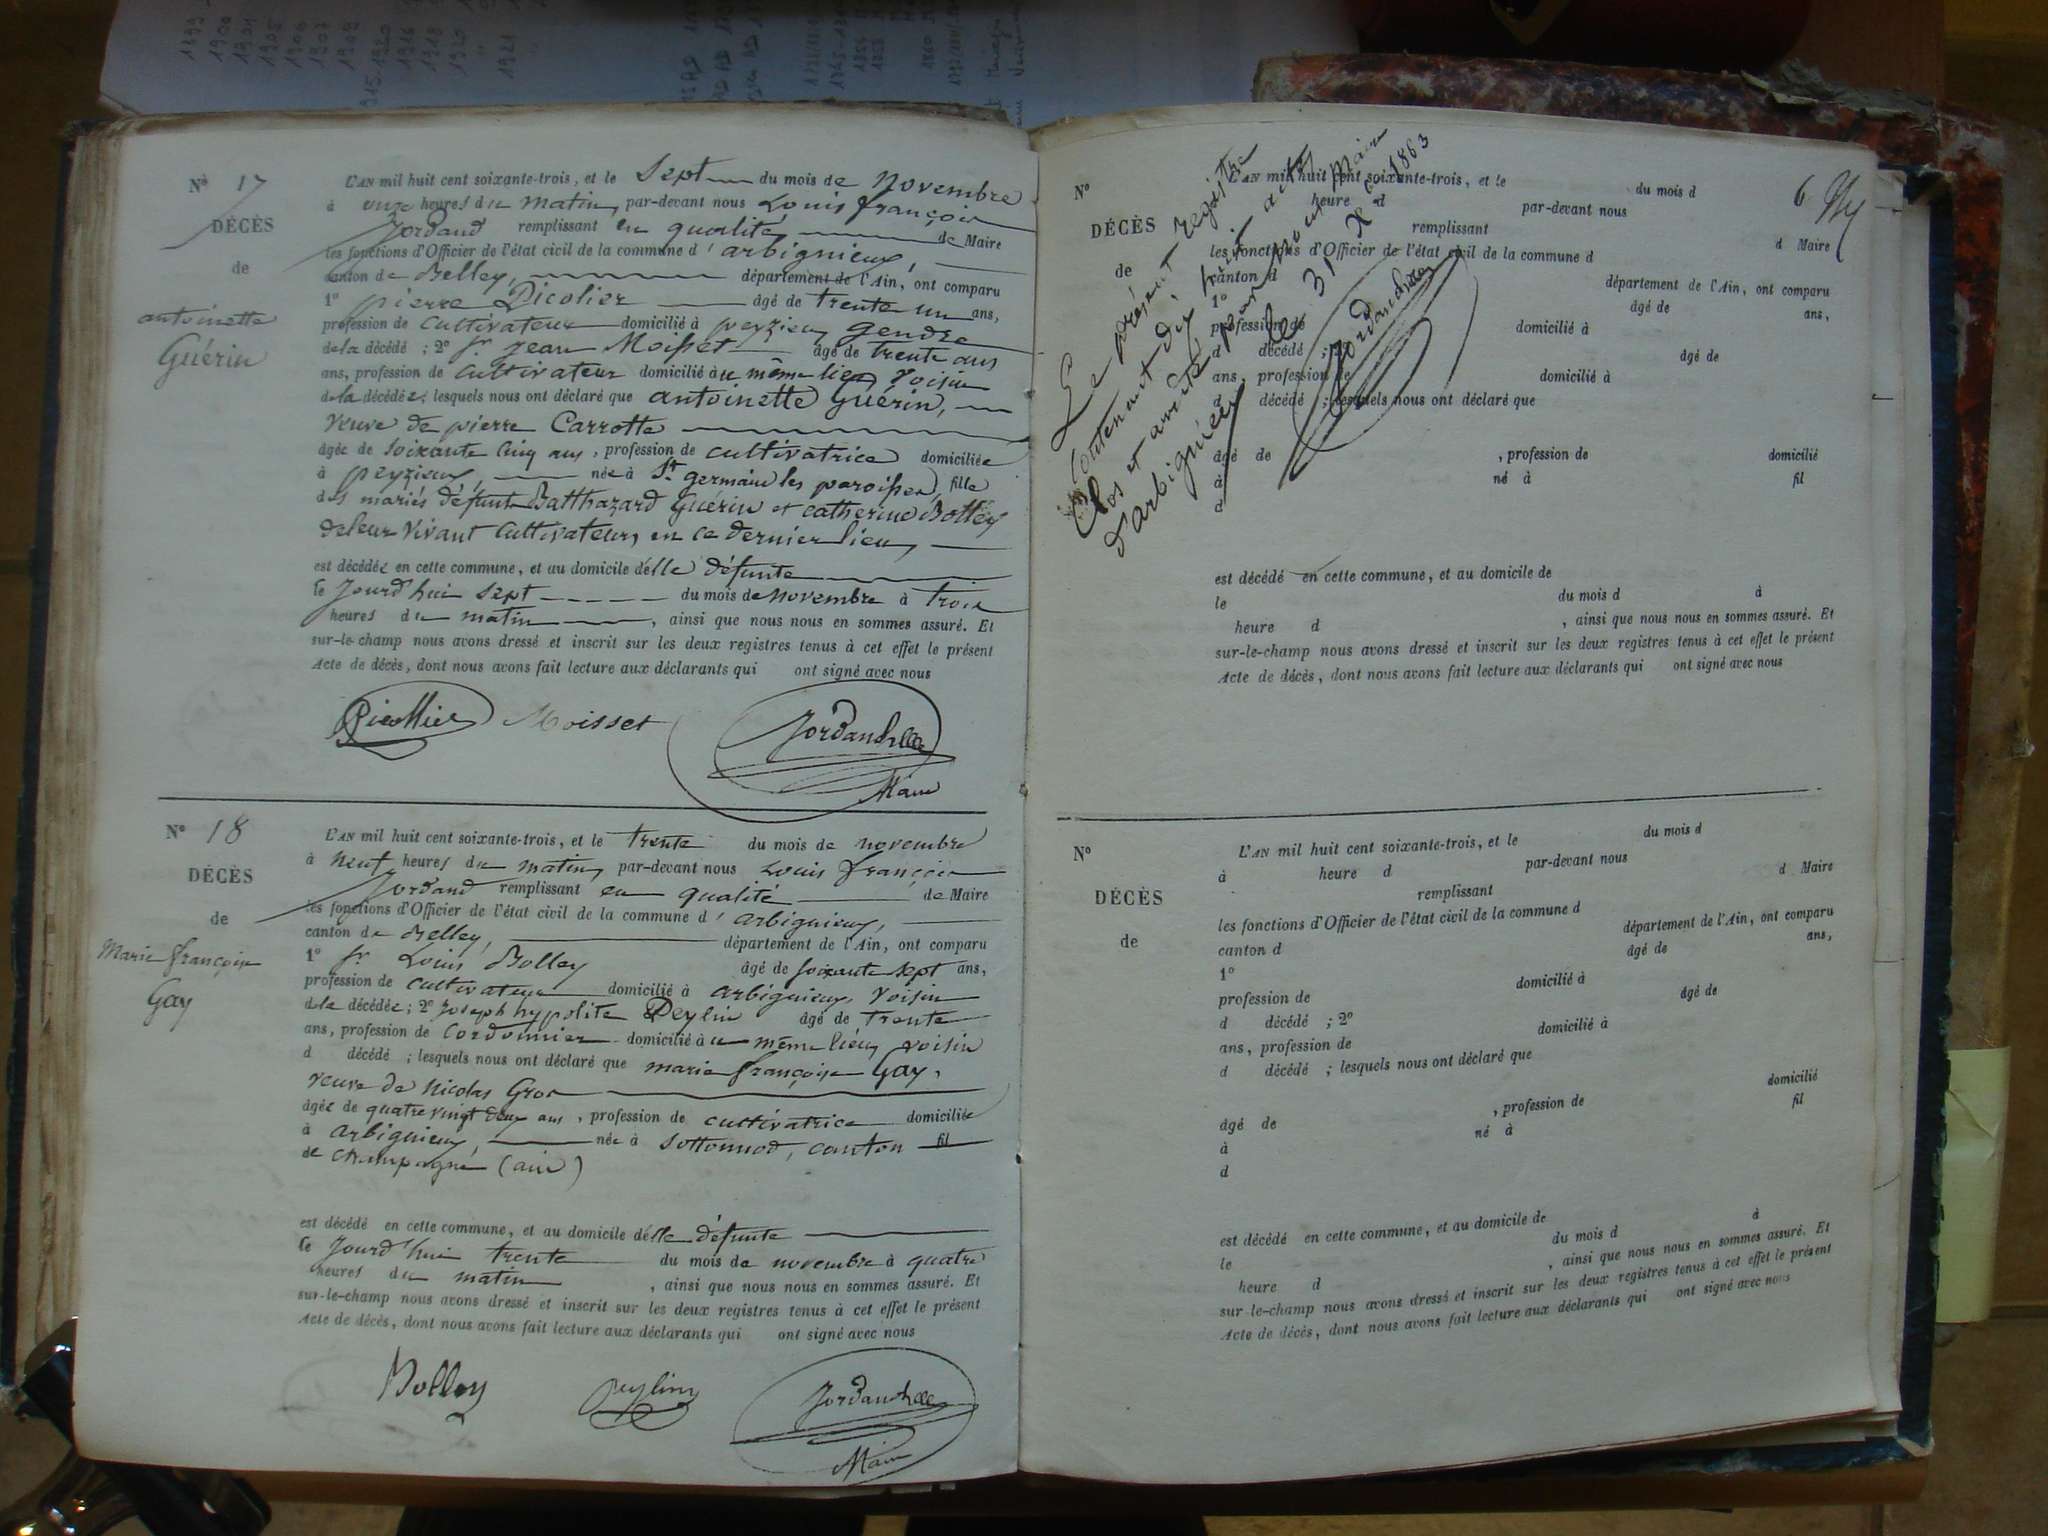 N° 17
DÉCÈS
de
antoinette
Guérin
L'AN mil huit cent soixante-trois, et le sept du mois de novembre
à onze heures du matin, par-devant nous Louis françois
Jordand remplissant en qualité de Maire
les fonctions d'Officier de l'état civil de la commune d'arbignieux,
canton de Belley, département de l'Ain, ont comparu
1° pierre Picolier âgé de trente un ans,
profession de cultivateur domicilié à peyzieux gendre
de la décédé ; 2° Sr jean Moisset âgé de trente ans
ans, profession de cultivateur domicilié au même lieu, voisin
de la décédée ; lesquels nous ont déclaré que antoinette Guérin,
veuve de pierre Carrotte
âgée de soixante cinq ans, profession de cultivatrice domiciliée
à peyzieux, née à St germain les paroisses, fille
des mariés défunt Balthazard Guérin et catherine Bolley
de leur vivant cultivateurs en ce dernier lieu,
est décédée en cette commune, et au domicile d'elle défunte
le jourd'hui sept du mois de novembre à trois
heures du matin, ainsi que nous nous en sommes assuré. Et
sur-le-champ nous avons dressé et inscrit sur les deux registres tenus à cet effet le présent
Acte de décès, dont nous avons fait lecture aux déclarants qui ont signé avec nous
Picollier Moisset
Maire
N° 18
DÉCÈS
de
Marie françoise
Gay
L'AN mil huit cent soixante-trois, et le trente du mois de novembre
à neuf heures du matin, par-devant nous Louis françois
Jordand remplissant en qualité de Maire
les fonctions d'Officier de l'état civil de la commune d'arbignieux,
canton de Belley, département de l'Ain, ont comparu
1° Sr Louis Bolley âgé de soixante sept ans,
profession de cultivateur domicilié à arbignieux, voisin
de la décédée ; 2° Joseph hypolite Peylin âgé de trente
ans, profession de cordonnier domicilié au même lieu, voisin
d décédé ; lesquels nous ont déclaré que marie françoise Gay,
veuve de nicolas Gros
âgée de quatre vingt deux ans, profession de cultivatrice domiciliée
à arbignieux, née à sottonnod, canton fil
de champagne (ain)
est décédé en cette commune, et au domicile d'elle défunte
le jourd'hui trente du mois de novembre à quatre
heures du matin, ainsi que nous nous en sommes assuré. Et
sur-le-champ nous avons dressé et inscrit sur les deux registres tenus à cet effet le présent
Acte de décès, dont nous avons fait lecture aux déclarants qui ont signé avec nous
Bolley peylin
Maire
6
Le présent registre
contenant dix huit actes
Clos et arrêté par nous Maire
d'arbignieux le 31 Xbre 1863
N°
DÉCÈS
de
L'AN mil huit cent soixante-trois, et le du mois d
à heure d par-devant nous
remplissant d Maire
les fonctions d'Officier de l'état civil de la commune d
canton d département de l'Ain, ont comparu
1° âgé de ans,
profession de domicilié à
d décédé ; 2° âgé de
ans, profession de domicilié à
d décédé ; lesquels nous ont déclaré que
âgé de , profession de domicilié
à né à fil
d
est décédé en cette commune, et au domicile de
le du mois d à
heure d , ainsi que nous nous en sommes assuré. Et
sur-le-champ nous avons dressé et inscrit sur les deux registres tenus à cet effet le présent
Acte de décès, dont nous avons fait lecture aux déclarants qui ont signé avec nous
N°
DÉCÈS
de
L'AN mil huit cent soixante-trois, et le du mois d
à heure d par-devant nous
remplissant d Maire
les fonctions d'Officier de l'état civil de la commune d
canton d département de l'Ain, ont comparu
1° âgé de ans,
profession de domicilié à
d décédé ; 2° âgé de
ans, profession de domicilié à
d décédé ; lesquels nous ont déclaré que
âgé de , profession de domicilié
à né à fil
d
est décédé en cette commune, et au domicile de
le du mois d à
heure d , ainsi que nous nous en sommes assuré. Et
sur-le-champ nous avons dressé et inscrit sur les deux registres tenus à cet effet le présent
Acte de décès, dont nous avons fait lecture aux déclarants qui ont signé avec nous